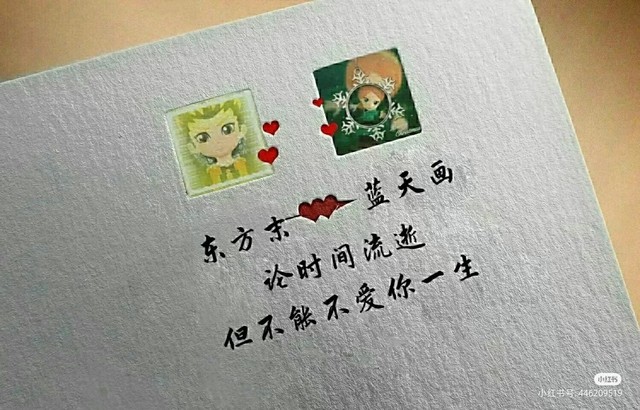 东方末 蓝天画
论时间流逝
但不能不爱你一生
小红书
小红书号: 446209519